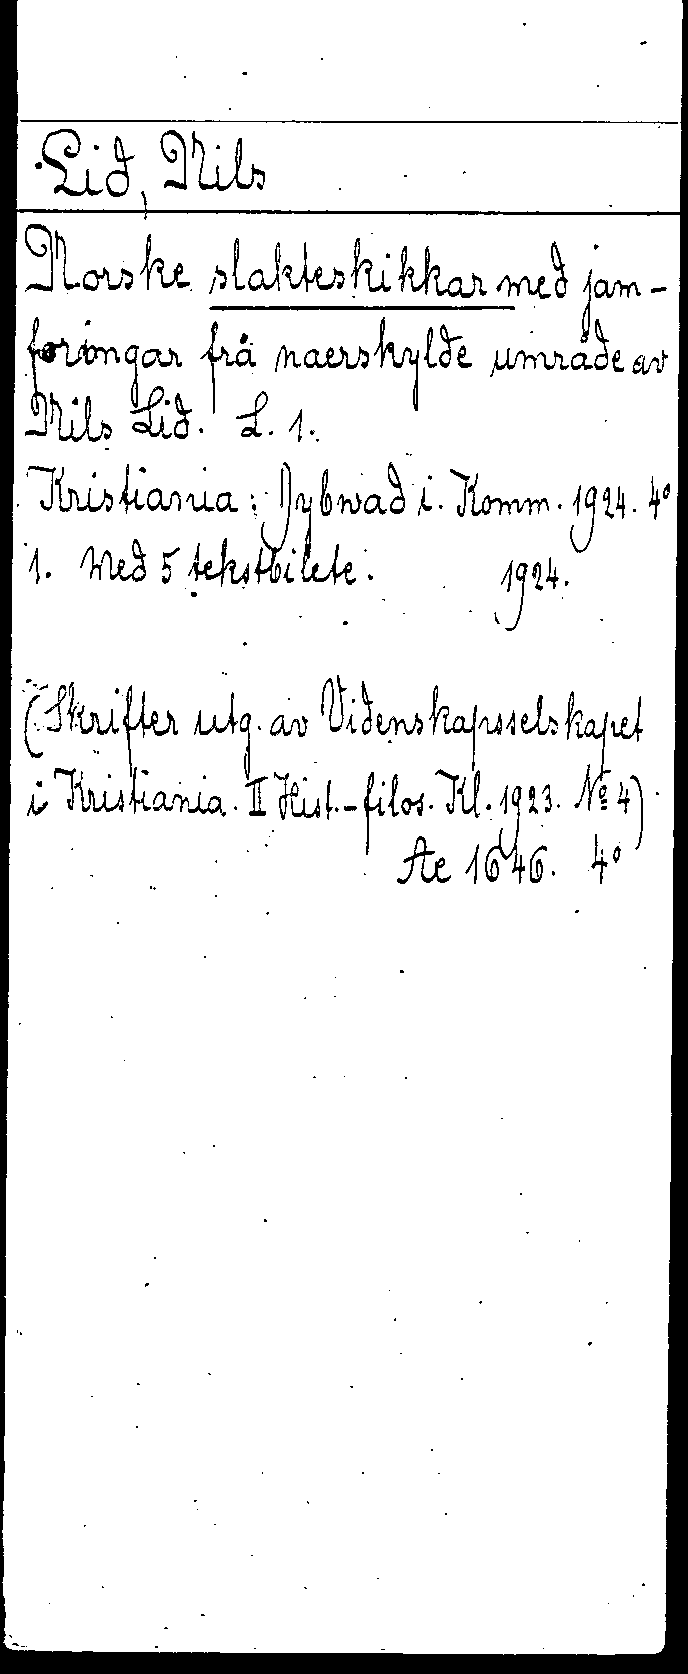 Lid, Nils
Norske slakteskikkar med jam-
foringar frå naerskylde umråde av
Nils Lid. L. 1.
Kristiania: Jybwad i. Komm. 1924. 4°
1. Med 5 tekstbilete. 1924.
(Skrifter utg. av Videnskapsselskapet
i Kristiania. II Hist.-filos. Kl. 1923. No 4)
Ae 1646. 4°